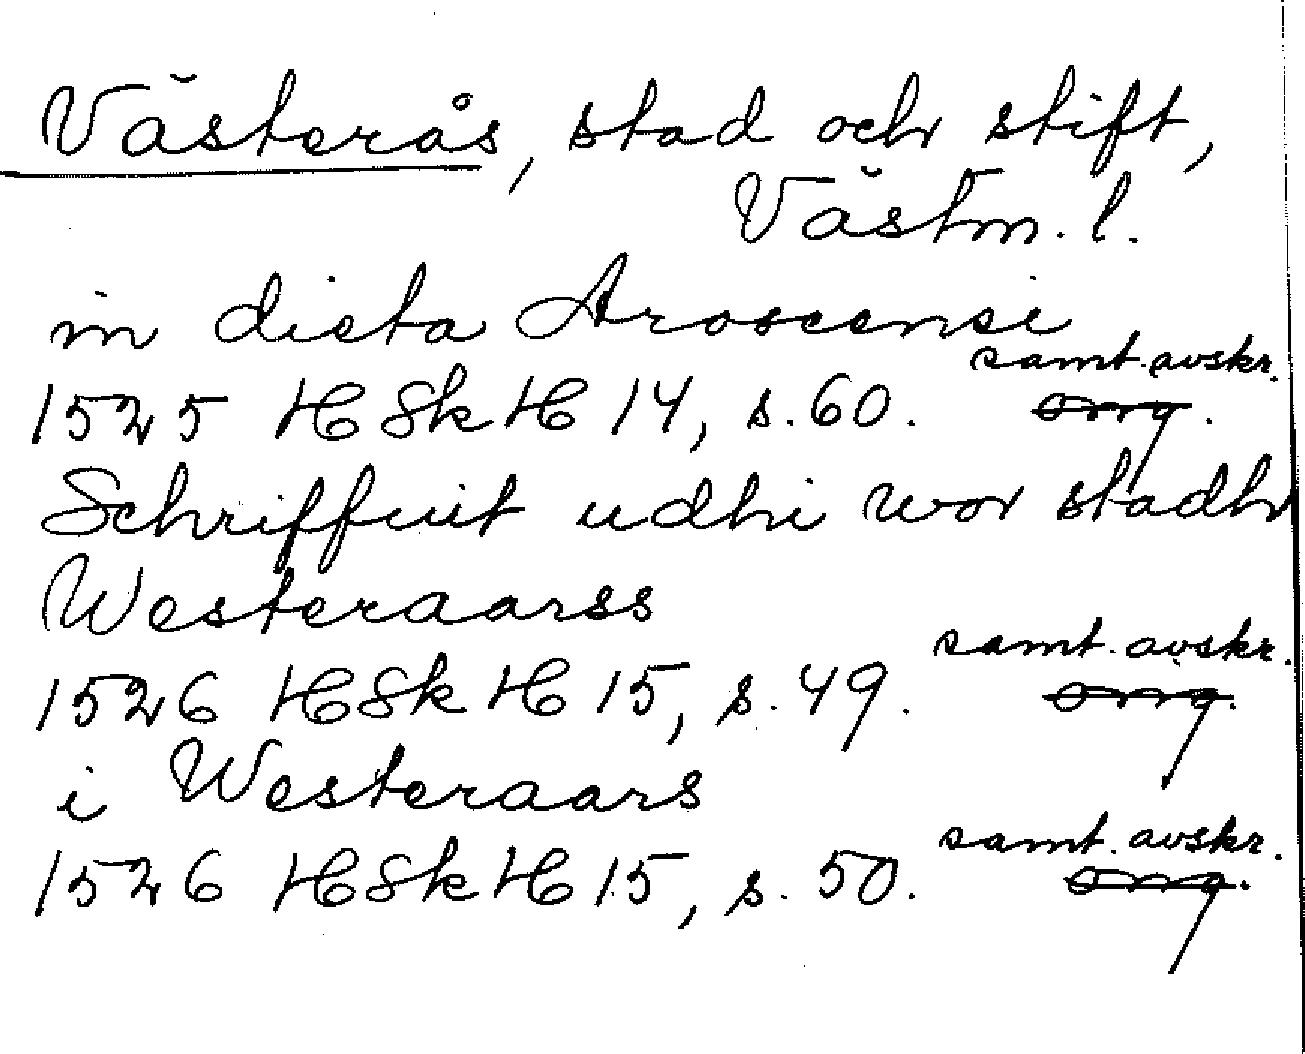 Västerås, stad och stift,
Västm. l.
in dieta Aroscensi
samt. avskr.
1525 HSkH 14, s. 60. org.
Schriffuit udhi wor stadh
Westeraarss
samt. avskr.
1526 HSkH 15, s. 49. org.
i Westeraars
samt. avskr.
1526 HSkH 15, s. 50. org.